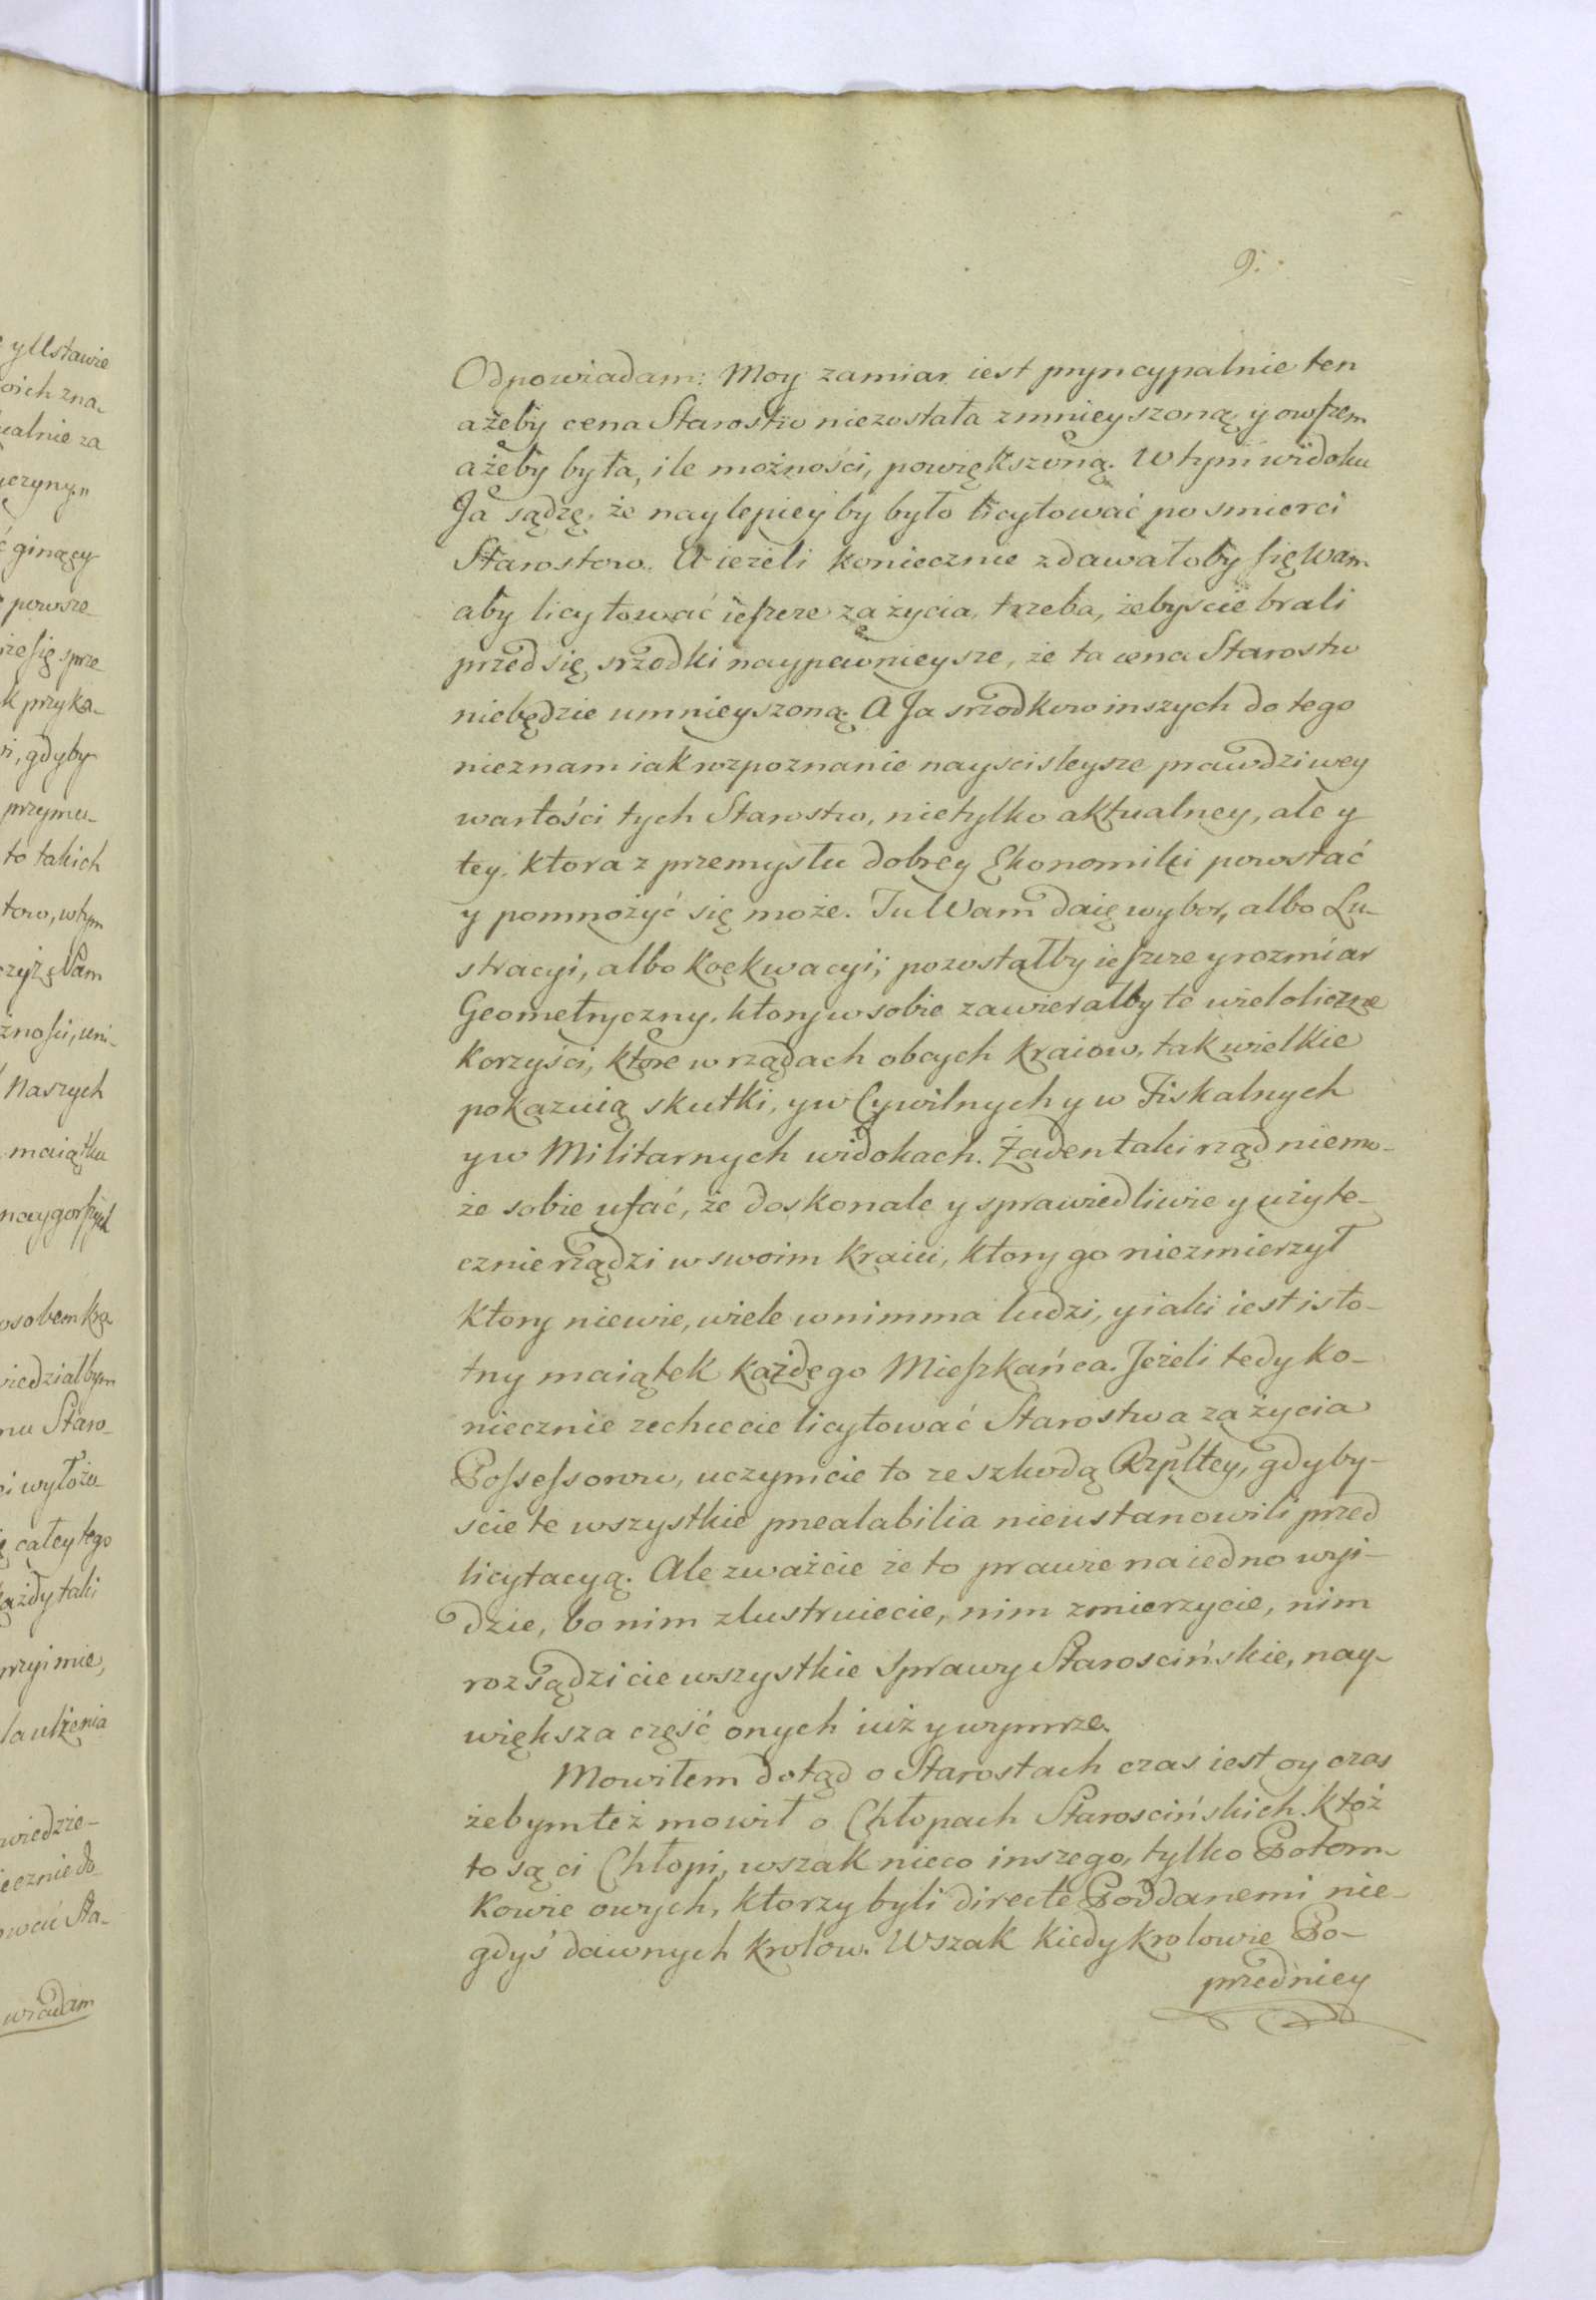 9.
Odpowiadam: Moy zamiar iest pryncypalnie ten
ażeby cena Starostw niezostała zmnieyszoną, y owszem
ażeby była, ile możności, powiększoną. W tym widoku
Ja sądzę, że naylepiey by było licytować po smierci
Starostow. A ieżeli koniecznie zdawałoby się Wam
aby licytować ieszcze za życia, trzeba, żebyscie brali
przed się srzodki naypewnieysze, że ta cena Starostw
niebędzie umnieyszoną. A Ja srzodkow inszych do tego
nieznam iak rozpoznanie nayscisleysze prawdziwey
wartości tych Starostw, nietylko aktualney, ale y
tey, ktora z przemysłu dobrey Ekonomiki powstać
y pomnożyć się może. Tu Wam daię wybor, albo Lu-
stracyi, albo Koekwacyi; pozostałby ieszcze y rozmiar
Geometryczny, ktory w sobie zawierałby te wieloliczne
korzyści, ktore w rządach obcych kraiow, tak wielkie
pokazuią skutki, y w Cywilnych y w Fiskalnych
y w Militarnych widokach. Żaden taki rząd niemo-
że sobie ufać, że doskonale y sprawiedliwie y użyte-
cznie rządzi w swoim kraiu, ktory go niezmierzył
ktory niewie, wiele w nim ma ludzi, y iaki iest isto-
tny maiątek każdego Mieszkańca. Jeżeli tedy ko-
niecznie zechcecie licytować Starostwa za życia
Possessorow, uczynicie to ze szkodą Rzpltey, gdyby-
scie te wszystkie prealabilia nieustanowili przed
licytacyą. Ale zważcie że to prawie na iedno wyi-
dzie, bo nim zlustruiecie, nim zmierzycie, nim
rozsądzicie wszystkie sprawy Staroscińskie, nay-
większa część onych iuż y wymrze.
Mowiłem dotąd o Starostach czas iest oy czas
żebym też mowił o Chłopach Staroscińskich. Ktoż
to są ci Chłopi, wszak nieco inszego, tylko Potom-
kowie owych, ktorzy byli directe Poddanemi nie-
gdyś dawnych krolow. Wszak kiedy krolowie Po-
przedniey